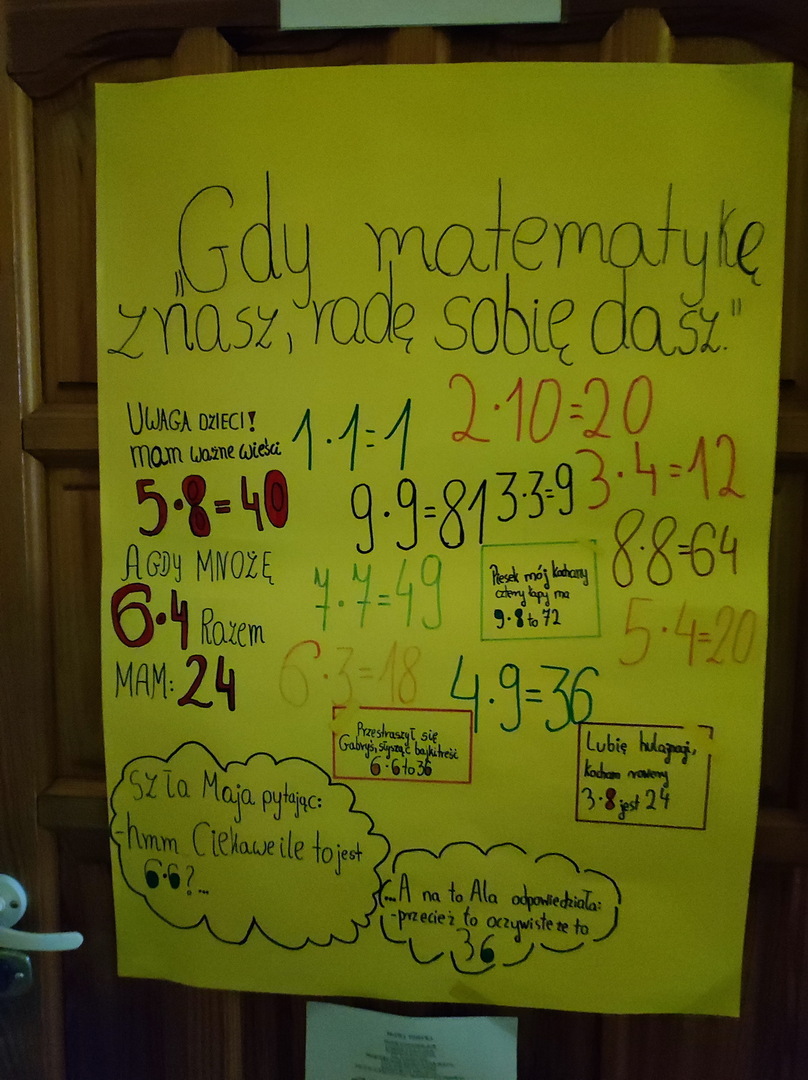 „Gdy matematykę
znasz, radę sobię dasz."
UWAGA DZIECI!
mam ważne wieści
5·8=40
A GDY MNOŻĘ
6·4 Razem
MAM: 24
1·1=1
2·10=20
9·9=81
3·3=9
3·4=12
8·8=64
7·7=49
Piesek mój kochany
cztery łapy ma
9·8 to 72
5·4=20
6·3=18
4·9=36
Przestraszył się
Gabryś, słysząc bajki treść
6·6 to 36
Lubię hulajnogi,
kocham rowery
3·8 jest 24
Szła Maja pytając:
-hmm Ciekawe ile to jest
6·6?...
...A na to Ala odpowiedziała:
-przecież to oczywiste że to
36